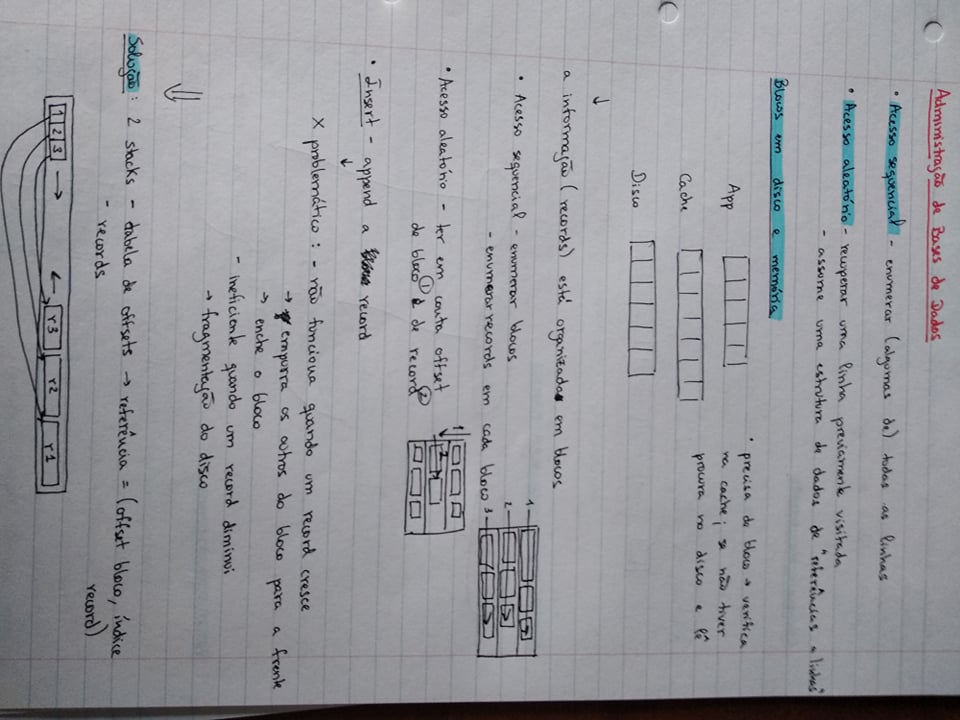 Administração de Bases de Dados
• Acesso sequencial - enumerar (algumas de) todas as linhas
• Acesso aleatório - recuperar uma linha previamente visitada
- assume uma estrutura de dados de "referências a linhas"
Blocos em disco e memória
App
Cache
Disco
• precisa do bloco → verifica
na cache; se não tiver
procura no disco e lê
↓
a informação (records) está organizada em blocos
• Acesso sequencial - enumerar blocos
- enumerar records em cada bloco
1
2
3
• Acesso aleatório - ter em conta offset
de bloco ① e de record ②
1
2
• Insert - append a record
↓
X problemático: - não funciona quando um record cresce
→ empurra os outros do bloco para a frente
→ enche o bloco
- ineficiente quando um record diminui
→ fragmentação do disco
⇓
Solução: 2 stacks - tabela de offsets → referência = (offset bloco, índice
record)
- records
1 2 3 → ← r3 r2 r1